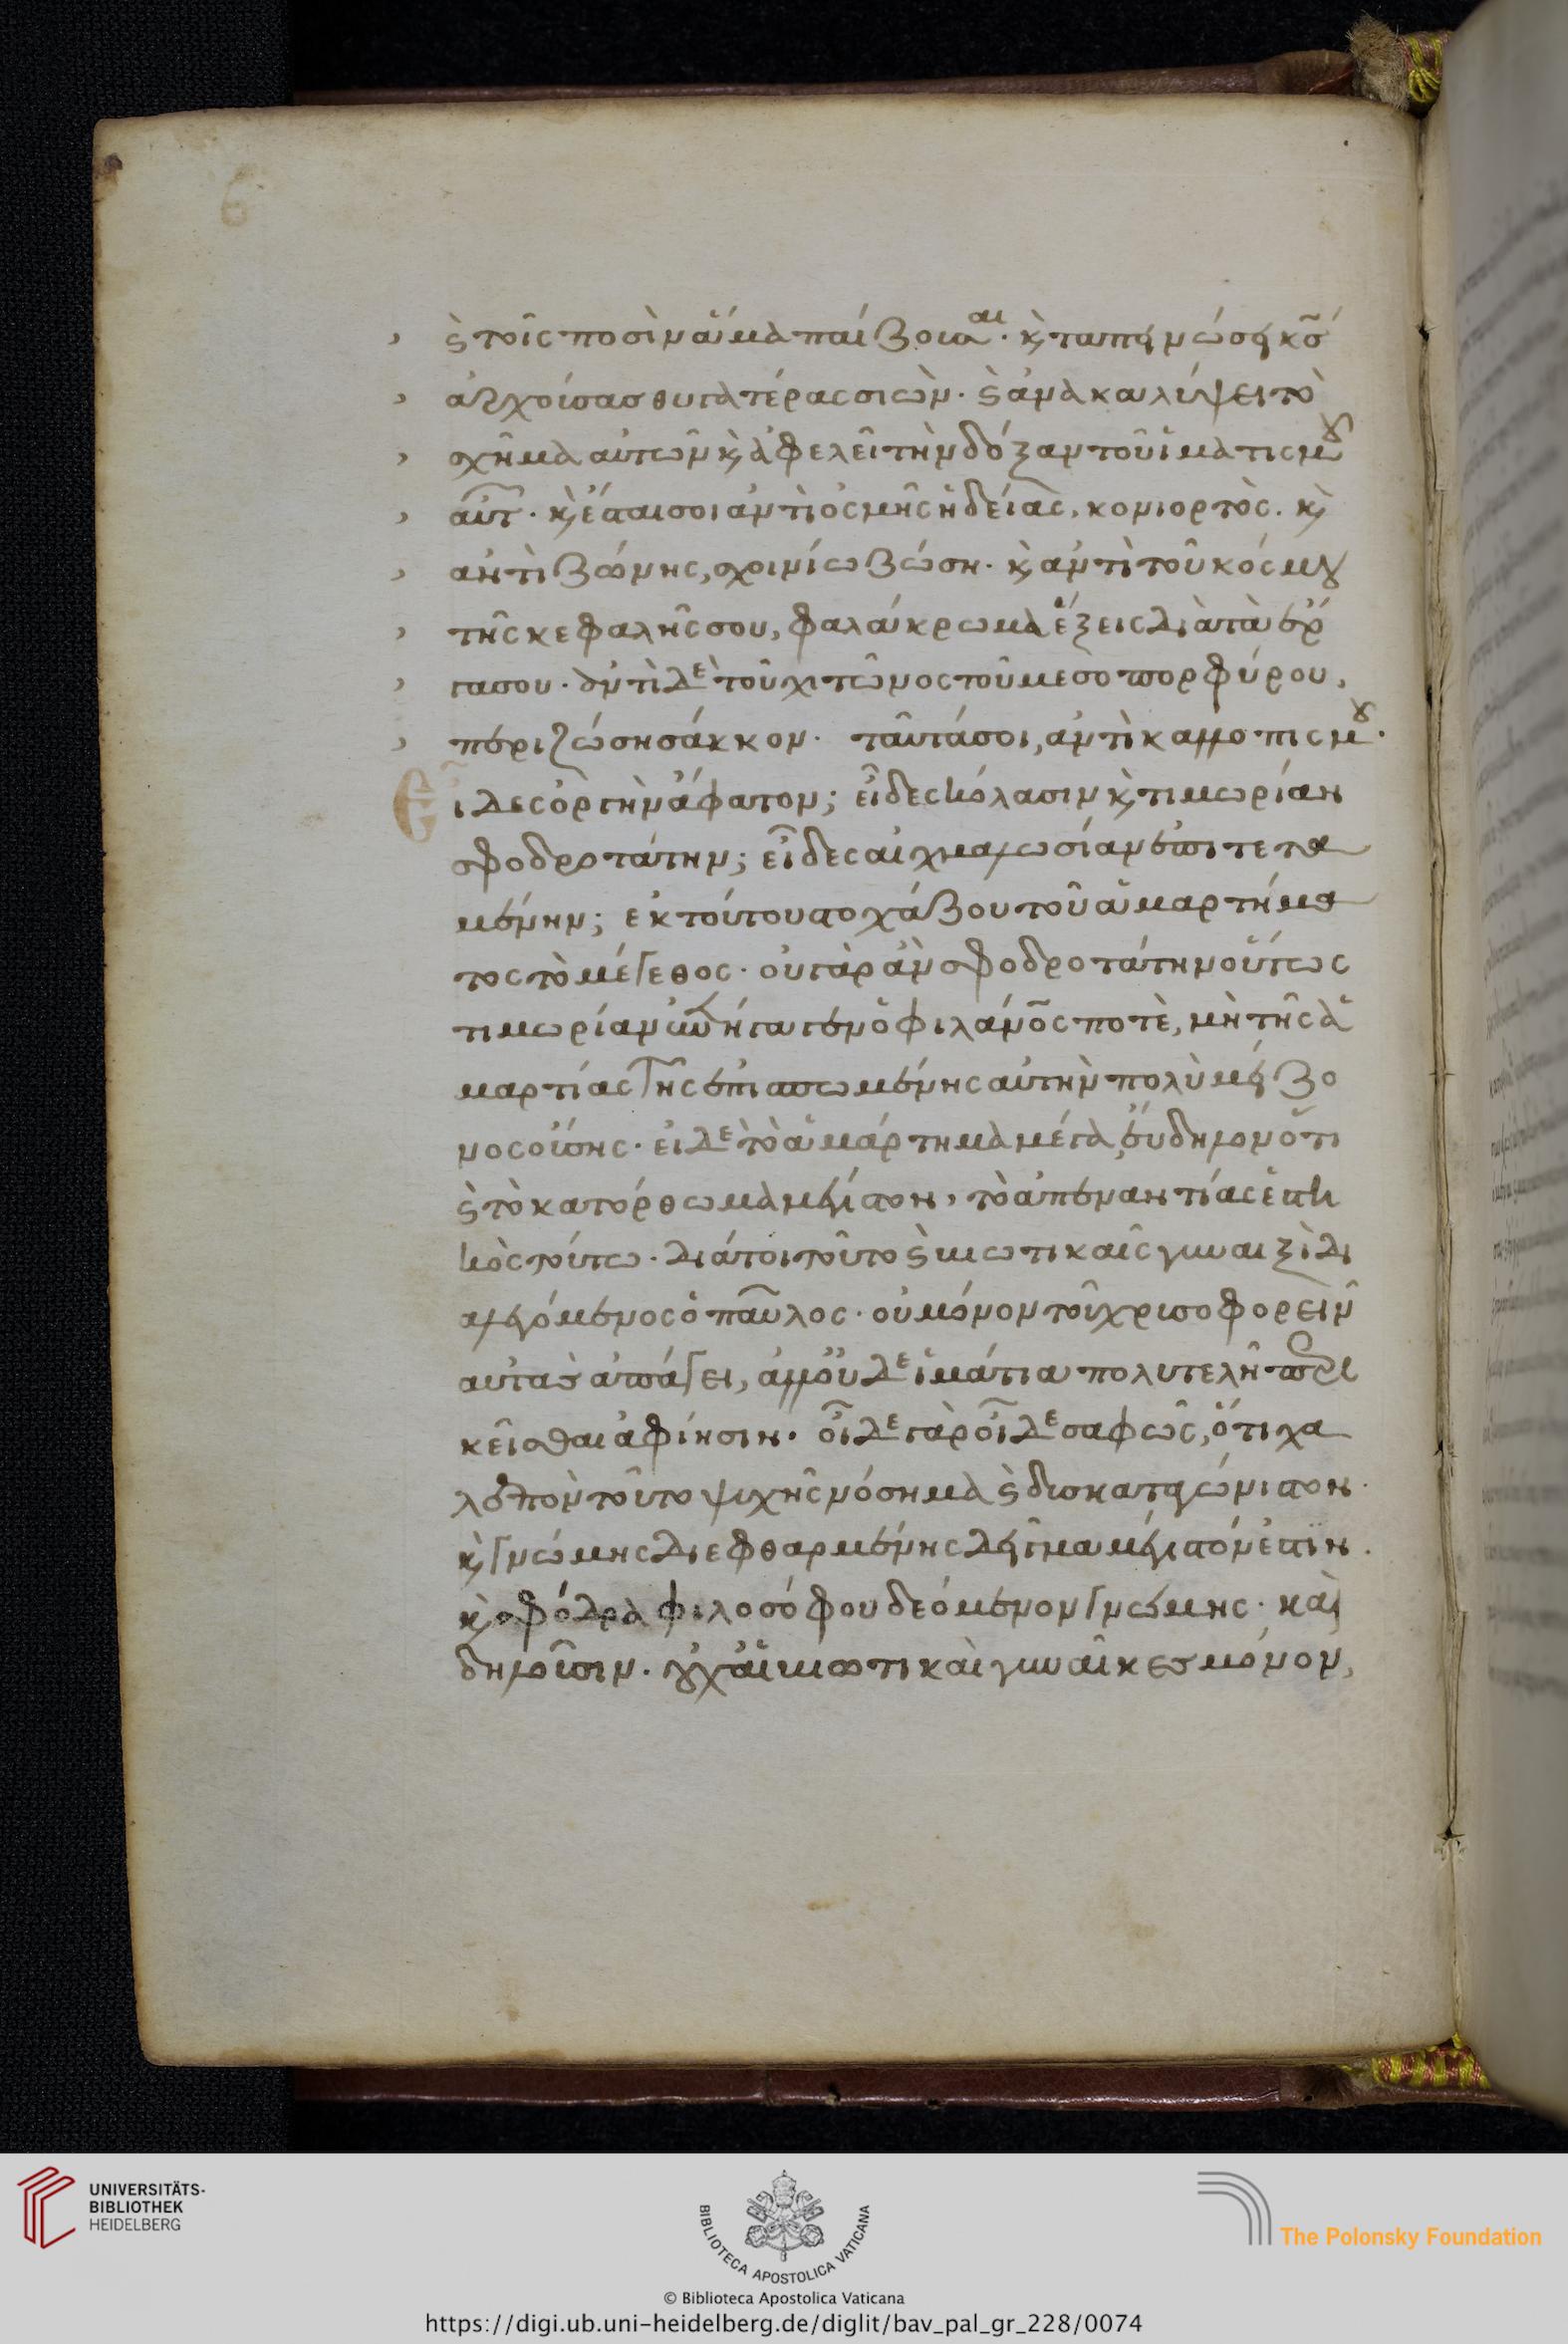 καὶ τοῖς ποσὶν ἅμα παίζουσαι· καὶ ταπεινώσει κς
ἀρχούσας θυγατέρας σιών· καὶ ἀνακαλύψει τὸ
σχῆμα αὐτῶν καὶ ἀφελεῖ τὴν δόξαν τοῦ ἱματισμοῦ
αὐτ· καὶ ἔσται σοι ἀντὶ ὀσμῆς ἡδείας, κονιορτός. καὶ
ἀντὶ ζώνης, σχοινίω ζώση. καὶ ἀντὶ τοῦ κόσμου
τῆς κεφαλῆς σου, φαλάκρωμα ἕξεις διὰ τὰ ἔρ
γα σου. ἀντὶ δὲ τοῦ χιτῶνος τοῦ μεσοπορφύρου,
περιζώση σάκκον. ταῦτά σοι, ἀντὶ καλλοπισμοῦ.
Εἶδες ὀργὴν ἄφατον; εἶδες κόλασιν καὶ τιμωρίαν
σφοδροτάτην; εἶδες αἰχμαλωσίαν ἐπιτετα
μένην; ἐκ τούτου στοχάζου τοῦ ἁμαρτήμα
τος τὸ μέγεθος. οὐ γὰρ ἂν σφοδροτάτην οὕτως
τιμωρίαν ἐπήγαγεν ὁ φιλάνος ποτὲ, μὴ τῆς ἁ
μαρτίας τῆς ἐπισπωμένης αὐτὴν πολὺ μείζο
νος οὔσης. εἰ δὲ τὸ ἁμάρτημα μέγα, εὔδηλον ὅτι
καὶ τὸ κατόρθωμα μεῖζον, τὸ ἀπεναντίας ἑστη
κὸς τούτω. διάτοι τοῦτο καὶ βιωτικαῖς γυναιξὶ δι
αλεγόμενος ὁ παῦλος. οὐ μόνον τοῦ χρυσοφορεῖν
αὐτὰς ἀπάγει, ἀλλ' οὐδὲ ἱμάτια πολυτελῆ περι
κεῖσθαι ἀφίησιν. οἶδε γὰρ οἶδε σαφῶς, ὅτι χα
λεπὸν τοῦτο ψυχῆς νόσημα καὶ δυσκαταγώνιστον.
καὶ γνώμης διεφθαρμένης δεῖγμα μέγιστόν ἐστιν.
καὶ σφόδρα φιλοσόφου δεόμενον γνώμης. καὶ
δηλοῦσιν. οὐχ αἱ βιωτικαὶ γυναῖκες μόνον,
UNIVERSITÄTS-
BIBLIOTHEK
HEIDELBERG
BIBLIOTECA APOSTOLICA VATICANA
The Polonsky Foundation
© Biblioteca Apostolica Vaticana
https://digi.ub.uni-heidelberg.de/diglit/bav_pal_gr_228/0074